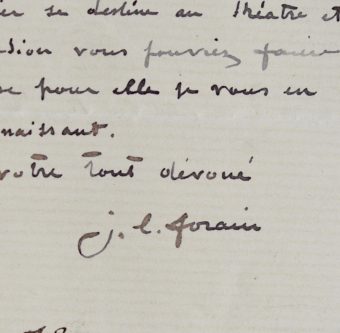 se destine au Théâtre et
sion vous pouviez faire
se pour elle je vous en
naissant.
votre tout dévoué
j. l. forain